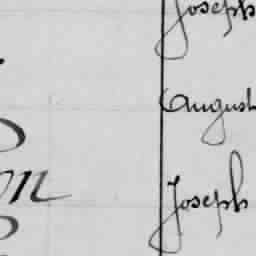 Joseph
August
on Joseph